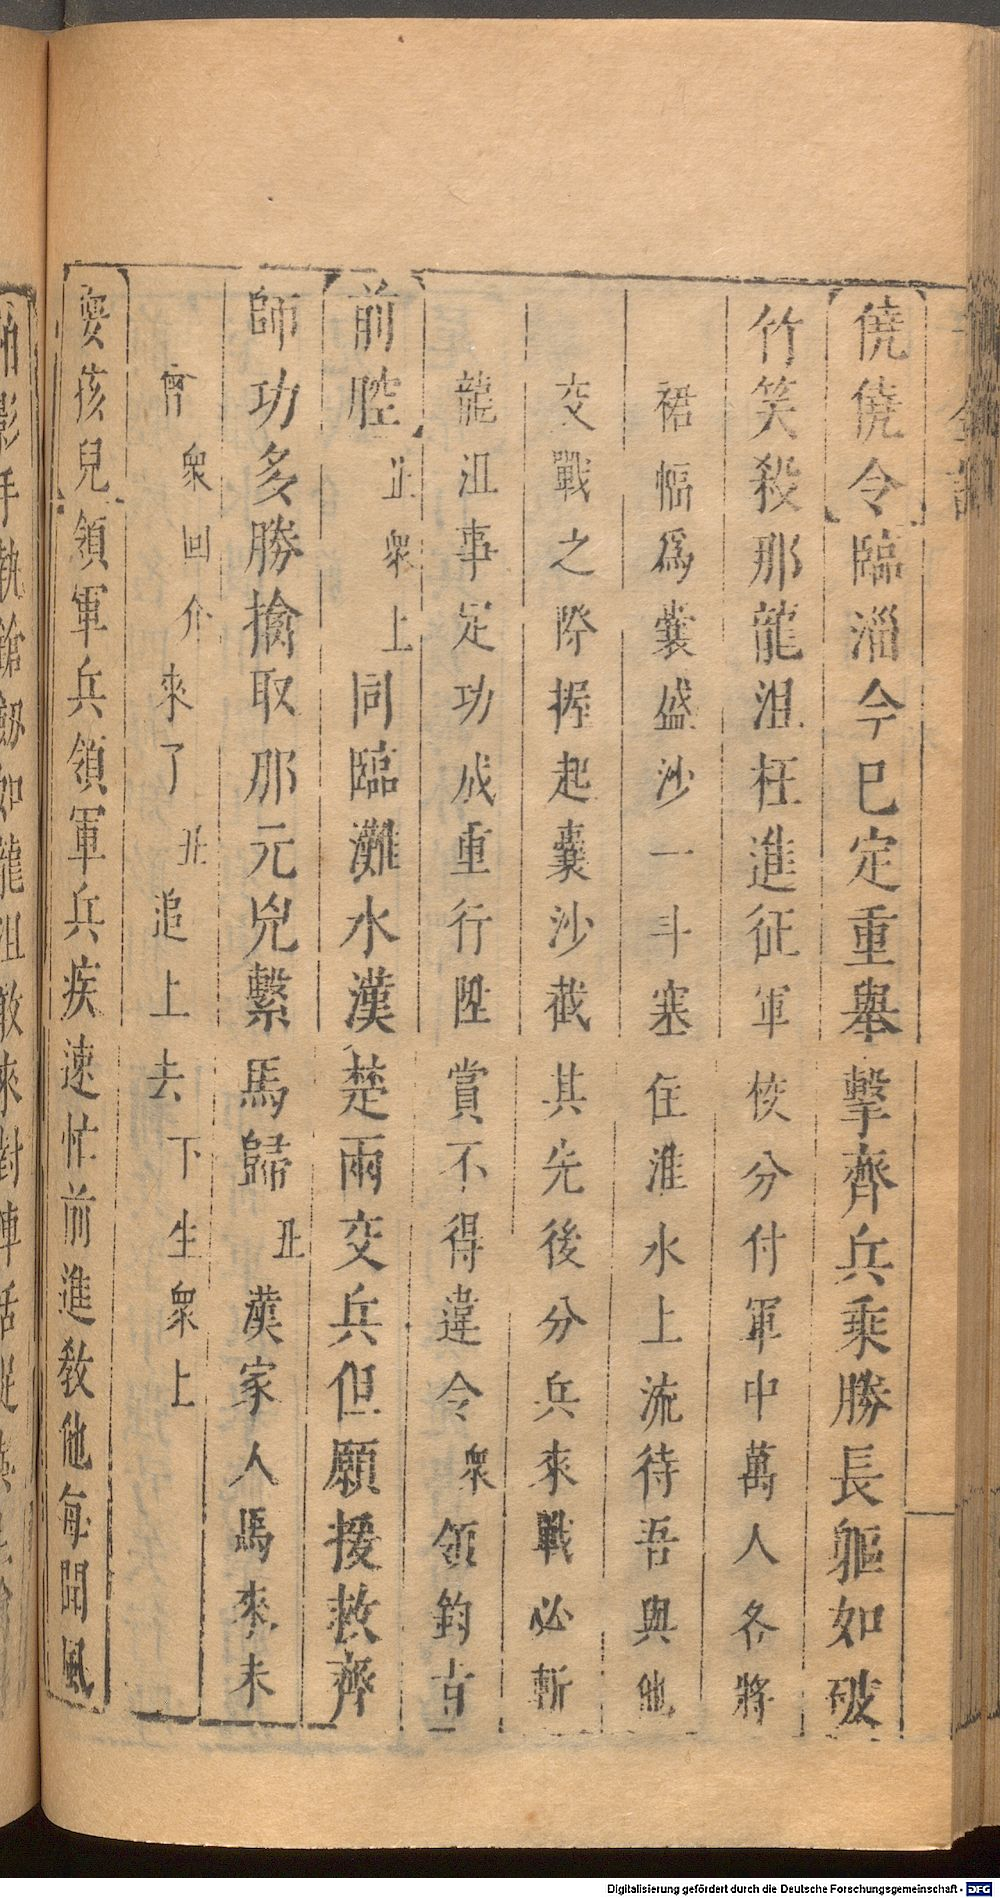 僥僥令臨淄今巳定重舉擊齊兵乘勝長驅如破
竹笑殺那龍沮枉進征軍校分付軍中萬人各將
裙幅爲囊盛沙一斗塞住濰水上流待吾與他
交戰之際握起囊沙截其先後分兵來戰必斬
龍沮事定功成重行陞賞不得違令衆領鈞旨
前腔丑衆上同臨灘水漢楚兩交兵但願援救齊
師功多勝擒取那元兇繫馬歸丑漢家人馬來未
曾衆回介來了丑追上去下生衆上
耍孩兒領軍兵領軍兵疾速忙前進教他每聞風
Digitalisierung gefördert durch die Deutsche Forschungsgemeinschaft - DFG